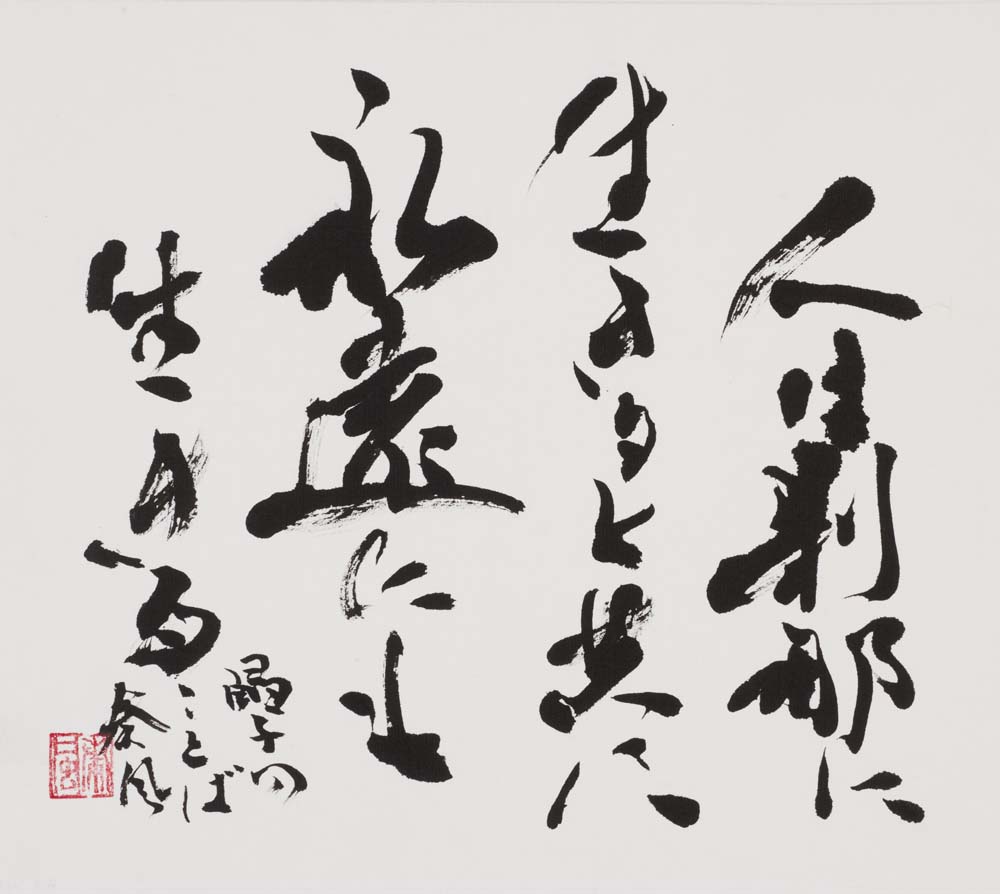 人は刹那に
生きると共に
永遠にも
生きる
晶子の
ことば
泰風